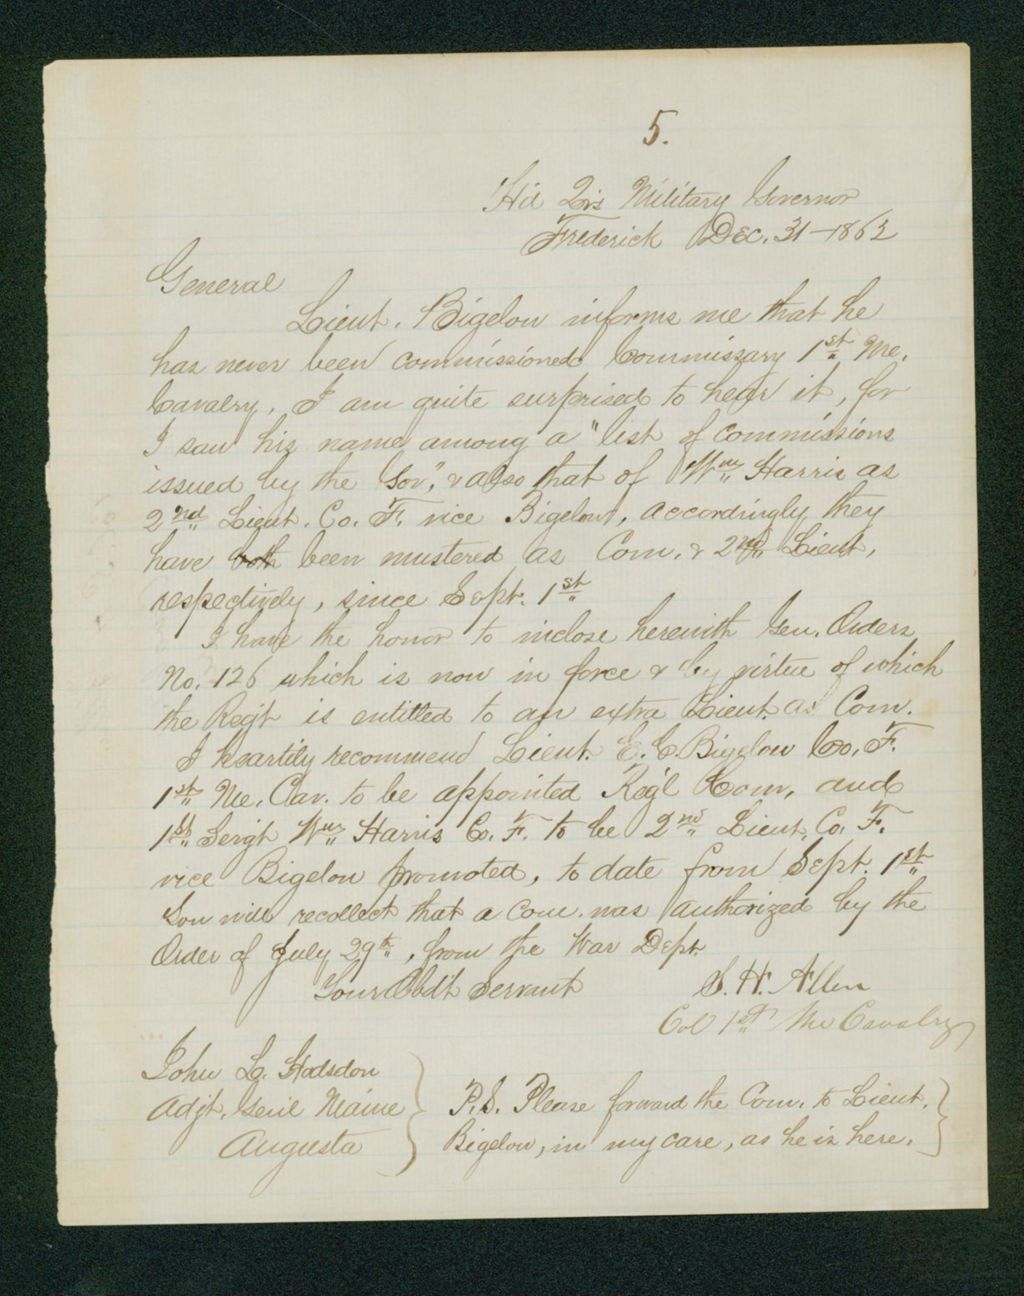 5.
Hd Qrs Military Governor
Frederick Dec. 31 - 1862
General
Lieut. Bigelow informs me that he
has never been commissioned Commissary 1st Me.
Cavalry. I am quite surprised to hear it, for
I saw his name among a "list of commissions
issued by the Gov", & also that of Wm Harris as
2nd Lieut. Co. F. vice Bigelow, accordingly they
have both been mustered as Com. & 2nd Lieut,
respectively, since Sept. 1st
I have the honor to inclose herewith Gen. Orders
No. 126 which is now in force & by virtue of which
the Regt is entitled to an extra Lieut. as Com.
I heartily recommend Lieut. E. C. Bigelow Co. F.
1st Me. Cav. to be appointed Reg'l Com, and
1st Sergt Wm Harris Co. F. to be 2nd Lieut, Co. F.
vice Bigelow promoted, to date from Sept. 1st
You will recollect that a Com. was authorized by the
Order of July 29th, from the War Dept.
Your Obdt Servant S. H. Allen
Col 1st Me Cavalry
John L. Hodsdon
Adjt. Genl Maine
Augusta
P.S. Please forward the Com. to Lieut.
Bigelow, in my care, as he is here.